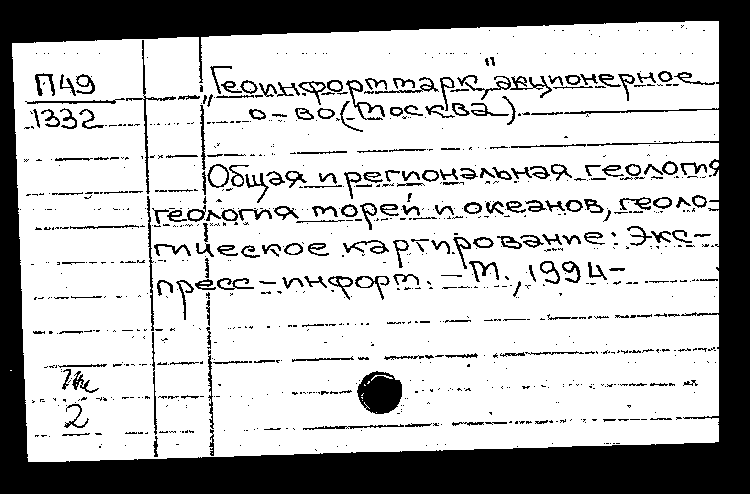 П49
1332
„Геоинформмарк", акционерное
о-во (Москва).
Общая и региональная геология
геология морей и океанов, геоло-
гическое картирование: Экс-
пресс-информ. – М., 1994-
2